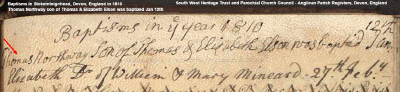 Baptisms in Stokeinteignhead, Devon, England in 1810
South West Heritage Trust and Parochial Church Council - Anglican Parish Registers, Devon, England
Thomas Northway son of Thomas & Elizabeth Elson was baptized Jan 12th
Baptisms in ye year 1810
12th
Thomas Northway Son of Thomas & Elizabeth Elson was baptiz'd Jan.
Elizabeth Dr. of William & Mary Mineard. 27th Feby.